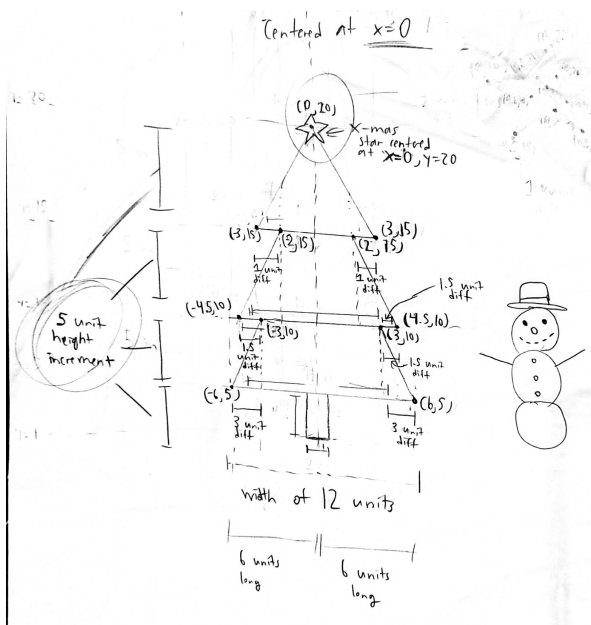 Centered at x=0
(0,20)
x-mas
star centered
at x=0, y=20
(-3,15)
(-2,15)
(2,15)
(3,15)
1 unit
diff
1 unit
diff
1.5 unit
diff
(-4.5,10)
(-3,10)
(3,10)
(4.5,10)
5 unit
height
increment
1.5
unit
diff
1.5 unit
diff
(-6,5)
(6,5)
3 unit
diff
3 unit
diff
width of 12 units
6 units
long
6 units
long